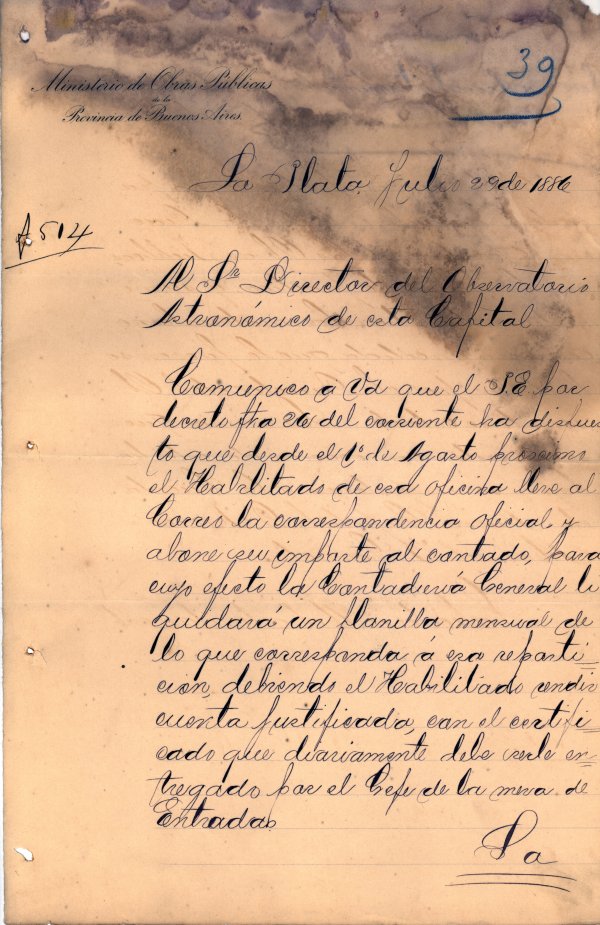 39
Ministerio de Obras Públicas
de la
Provincia de Buenos Aires.
La Plata, Julio 29 de 1886
A 514
Al Sr Director del Observatorio
Astronómico de esta Capital
Comunico a Vd que el P.E. por
decreto fha 26 del corriente ha dispues
to que desde el 1º de Agosto próximo
el Habilitado de esa oficina lleve al
Correo la correspondencia oficial y
abone su importe al contado, para
cuyo efecto la Contaduria General li
quidará un planilla mensual de
lo que corresponda á esa reparti-
cion, debiendo el Habilitado rendir
cuenta justificada, con el certifi-
cado que diariamente debe serle en-
tregado por el Gefe de la mesa de
Entradas.